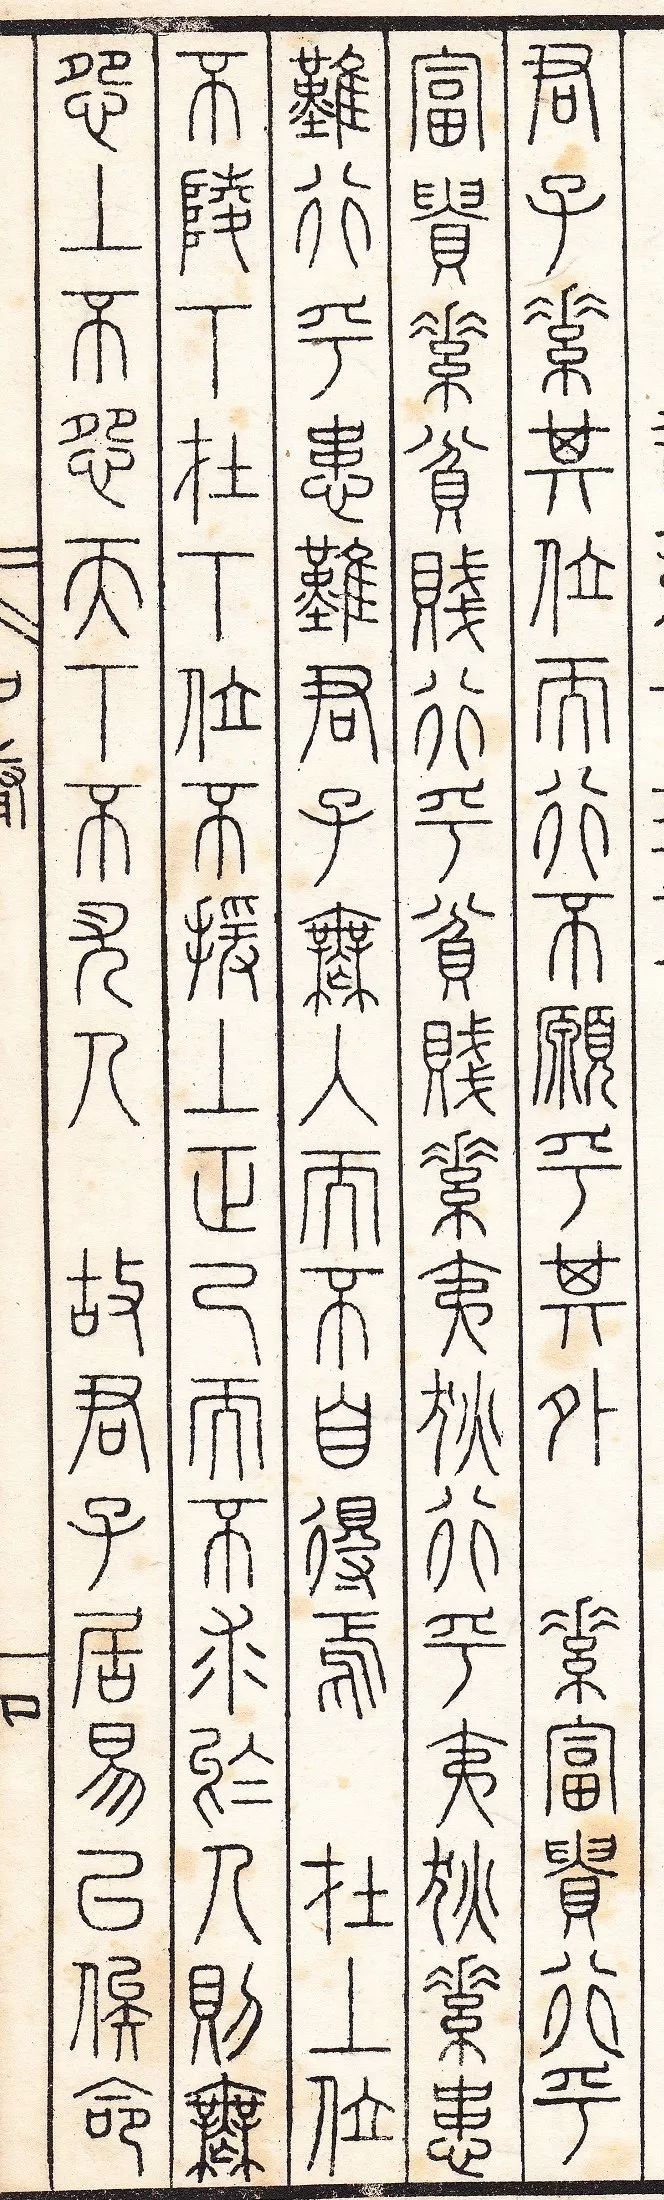 君子素其位而行不願乎其外　素富貴行乎
富貴素貧賤行乎貧賤素夷狄行乎夷狄素患
難行乎患難君子無入而不自得焉　在上位
不陵下在下位不援上正己而不求於人則無
怨上不怨天下不尤人　故君子居易以俟命